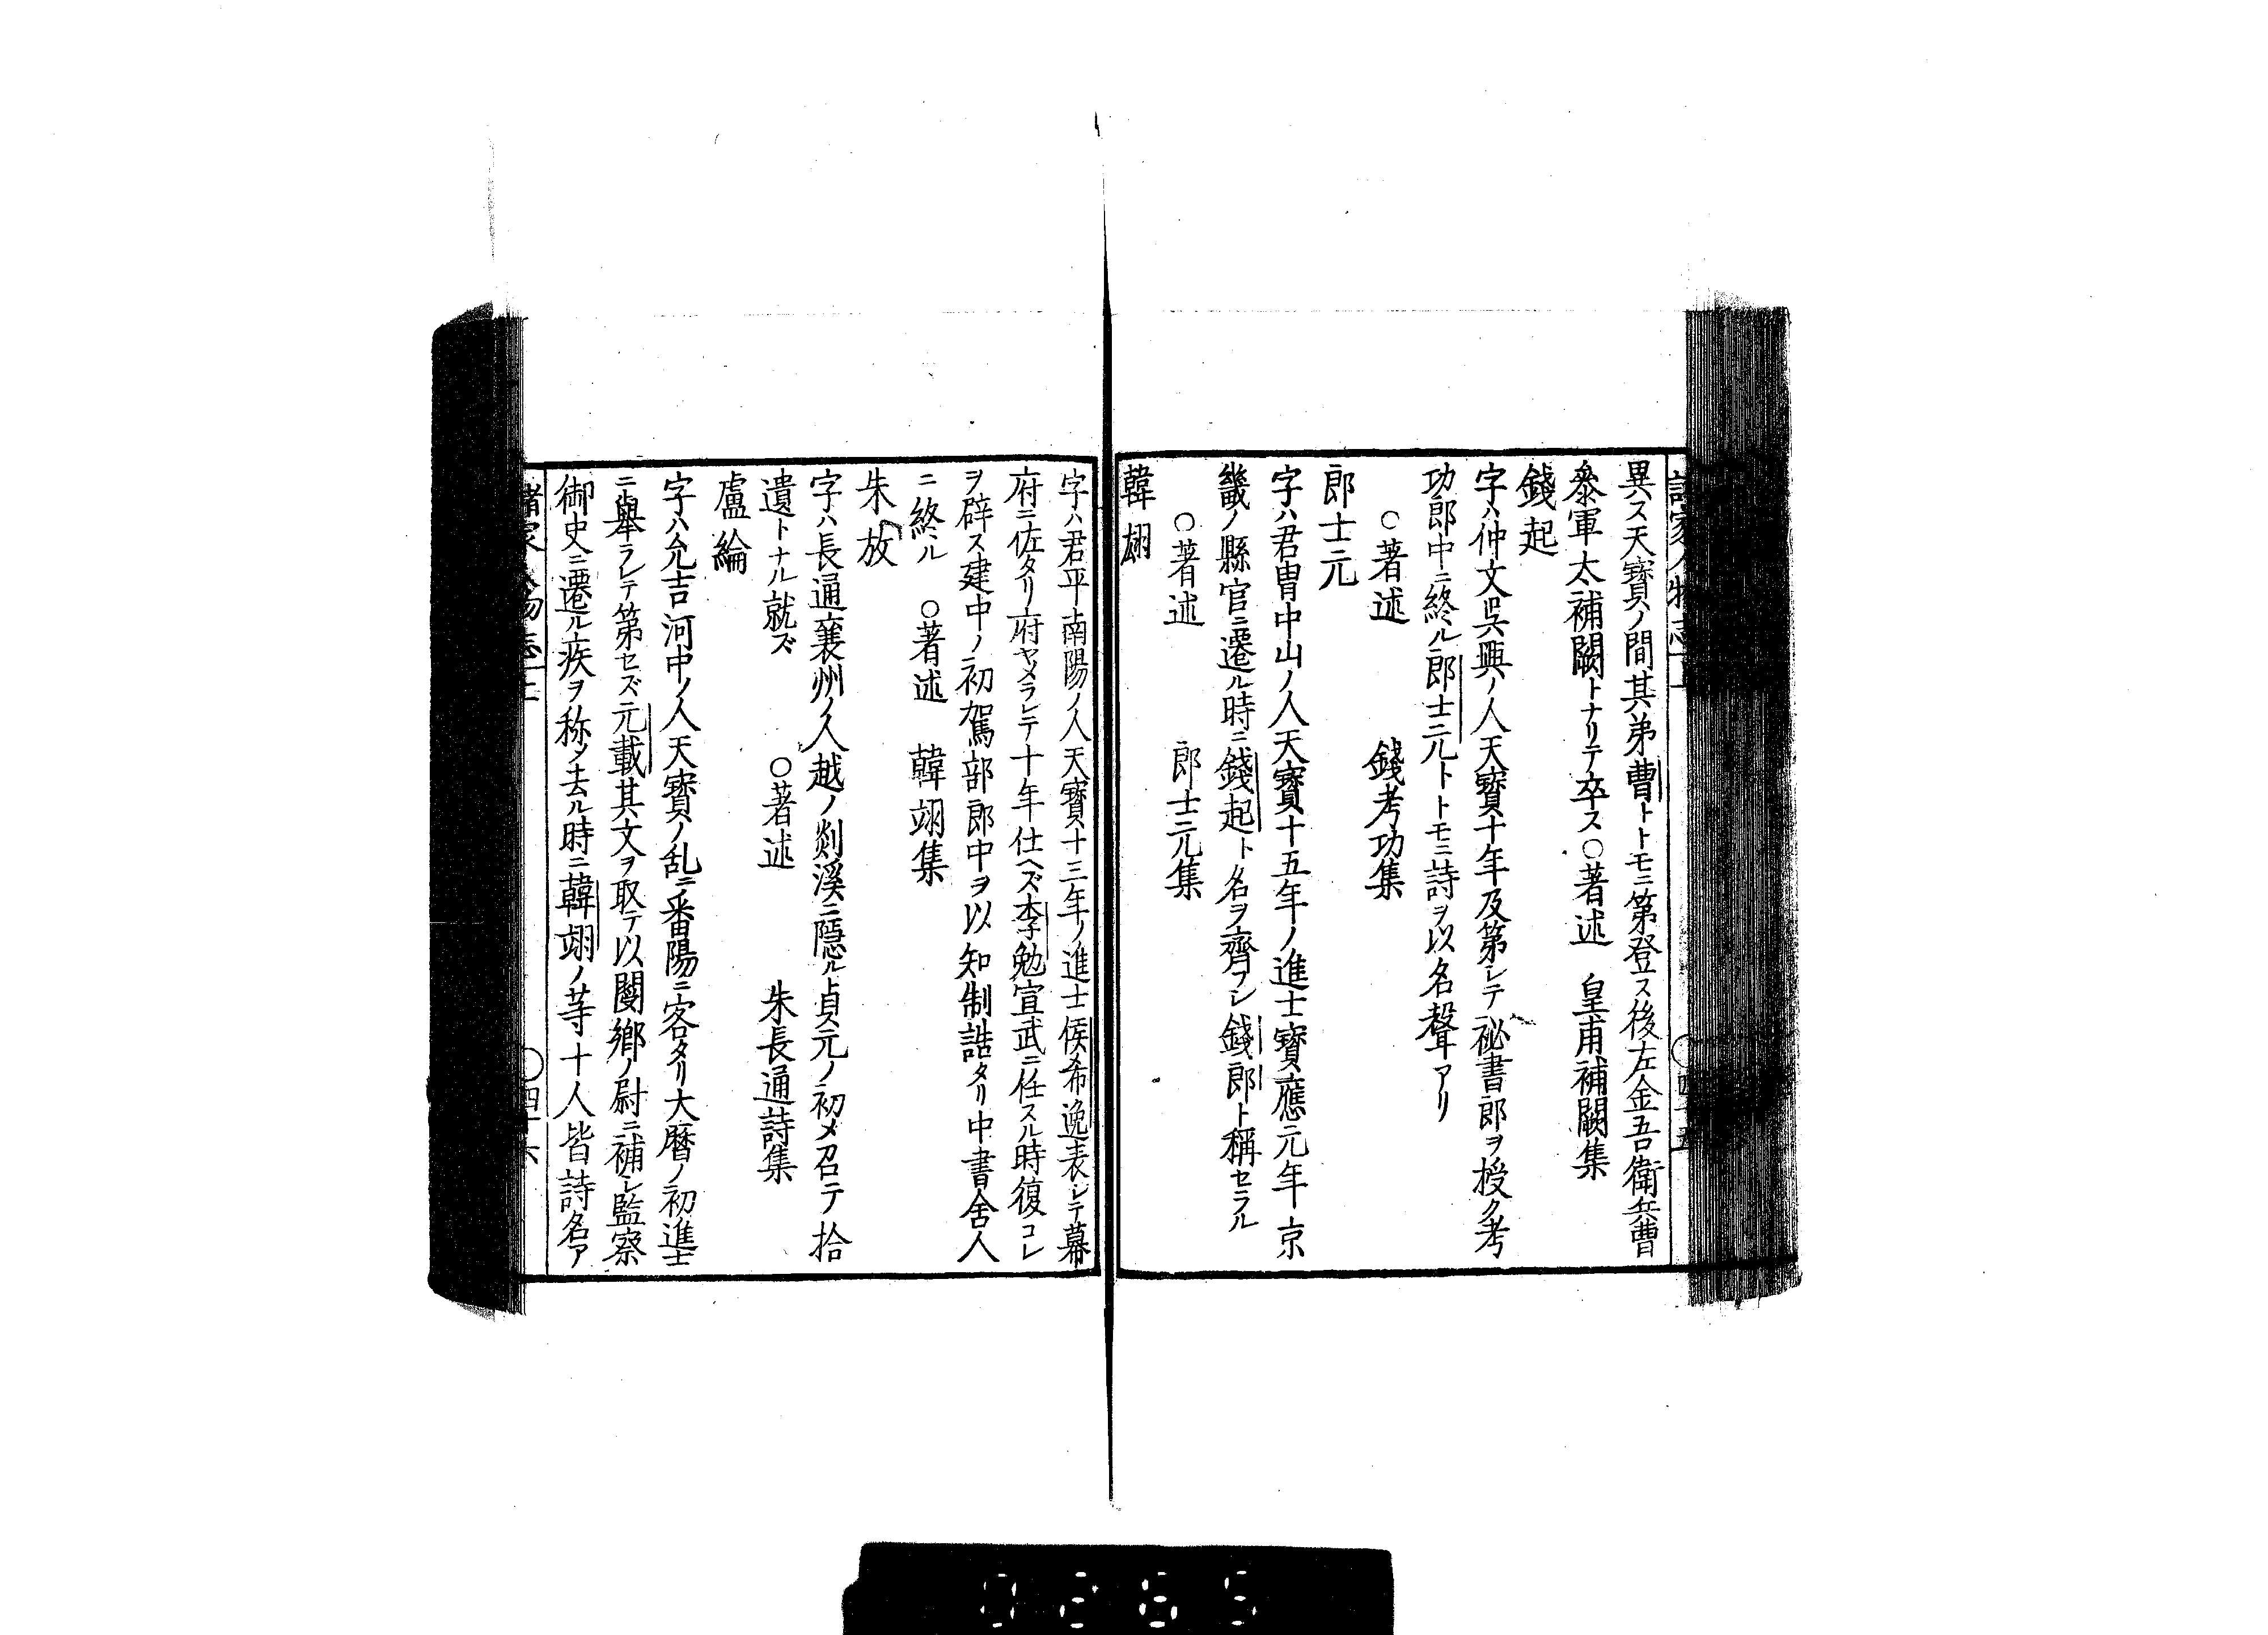 異ス天寳ノ間其弟曹トトモニ第登ス後左金吾衛兵曹
叅軍太補闕トナリテ卒ス○著述　皇甫補闕集
錢起
字ハ仲文呉興ノ人天寳十年及第シテ祕書郎ヲ授ク考
功郎中ニ終ル郎士元トトモニ詩ヲ以名聲アリ
○著述　錢考功集
郎士元
字ハ君冑中山ノ人天寳十五年ノ進士寳應元年京
畿ノ縣官ニ遷ル時ニ錢起ト名ヲ齊フシ錢郎ト稱セラル
○著述　郎士元集
韓翃
字ハ君平南陽ノ人天寳十三年ノ進士侯希逸表シテ幕
府ニ佐タリ府ヤメラレテ十年仕ヘズ李勉宣武ニ任スル時復コレ
ヲ辟ス建中ノ初駕部郎中ヲ以知制誥タリ中書舍人
ニ終ル　○著述　韓翊集
朱放
字ハ長通襄州ノ人越ノ剡溪ニ隱ル貞元ノ初メ召テ拾
遺トナル就ズ　○著述　朱長通詩集
盧綸
字ハ允吉河中ノ人天寳ノ乱ニ番陽ニ客タリ大暦ノ初進士
ニ舉ラレテ第セズ元載其文ヲ取テ以閿鄉ノ尉ニ補シ監察
御史ニ遷ル疾ヲ称メ去ル時ニ韓翊ノ等十人皆詩名ア
諸家人物志 ○四十六